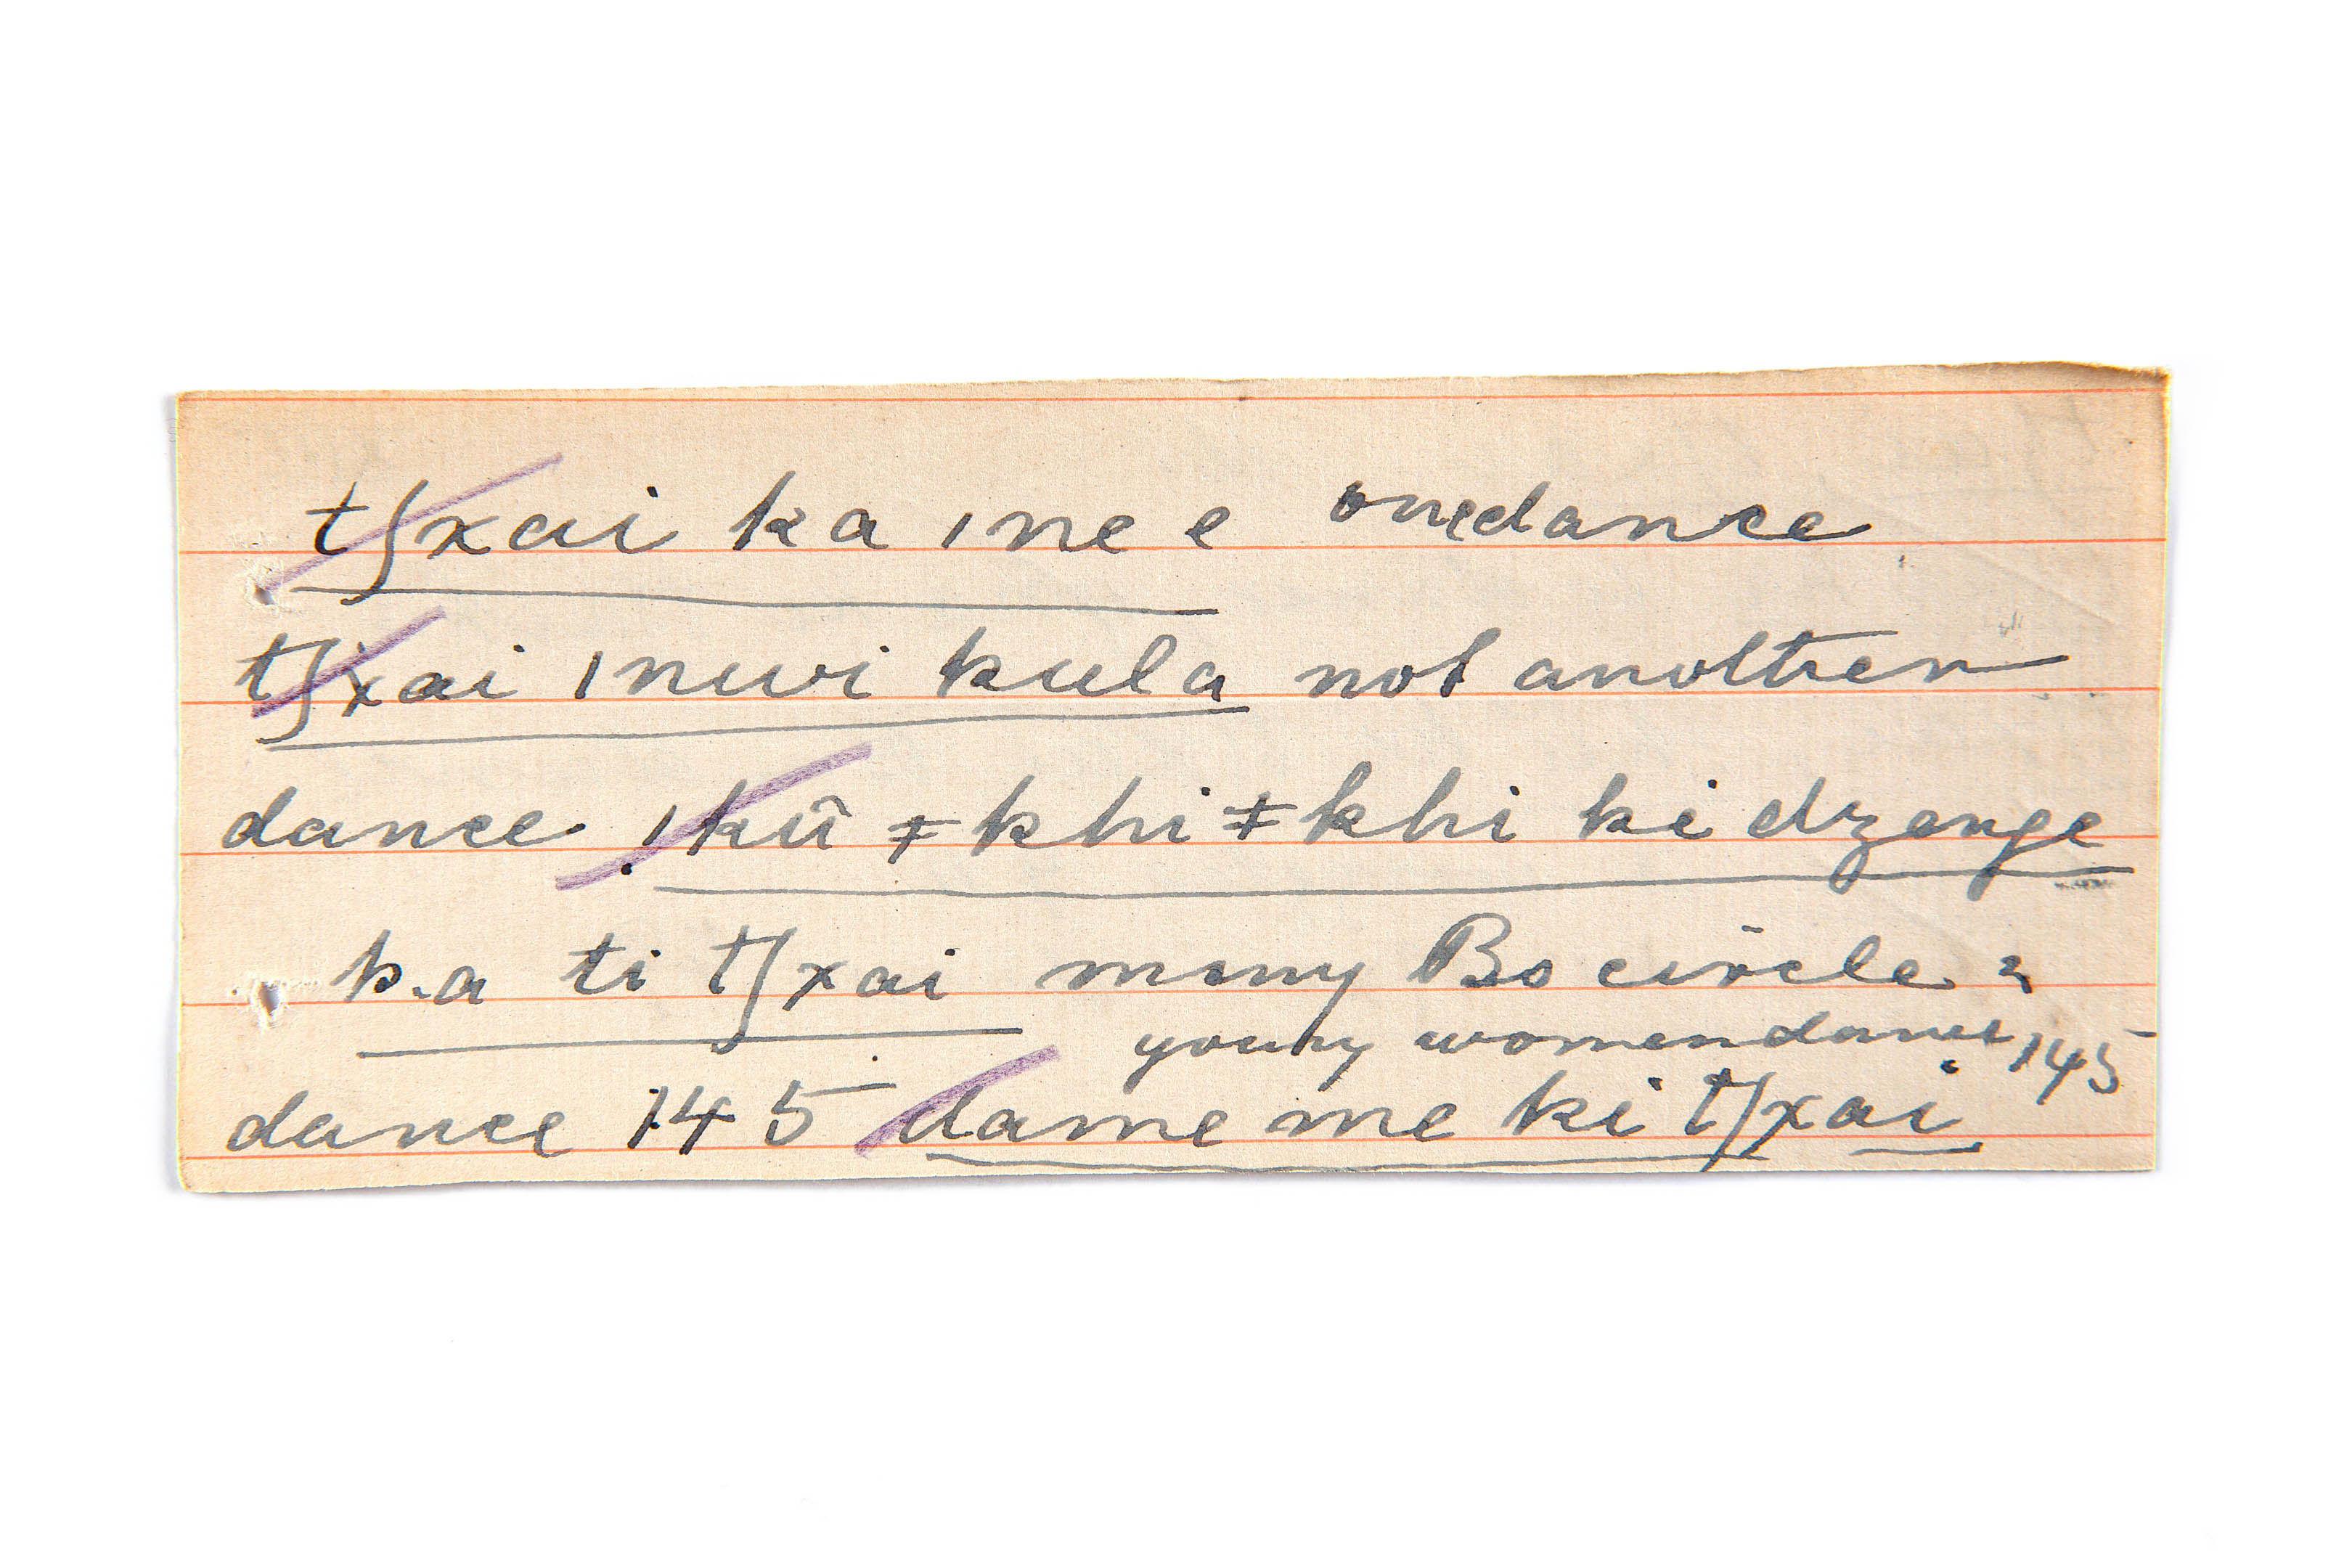 tʃxai ka ǀne e one dance
tʃxai ǀnwi kula not another
dance. ǀkû ǂkhi ǂkhi ki dzenge
ka ti tʃxai many Bs circle &
young women dance, 145
dance 145 dame me ki tʃxai